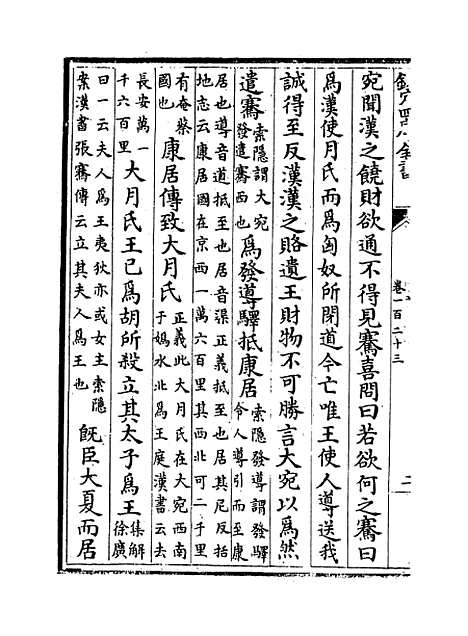 欽定四庫全書
卷一百二十三
二
宛聞漢之饒財欲通不得見騫喜問曰若欲何之騫曰
爲漢使月氏而爲匈奴所閉道今亡唯王使人導送我
誠得至反漢漢之賂遺王財物不可勝言大宛以爲然
遣騫索隱謂大宛發遣騫西也爲發導驛抵康居索隱發導謂發驛令人導引而至康
居也導音道抵至也居音渠正義抵至也居其尼反括
地志云康居國在京西一萬六百里其西北可二千里
有奄蔡國也康居傳致大月氏正義此大月氏在大宛西南于媯水北爲王庭漢書云去
長安萬一千六百里大月氏王已爲胡所殺立其太子爲王集解徐廣
曰一云夫人爲王夷狄亦或女主索隱
案漢書張騫傳云立其夫人爲王也既臣大夏而居